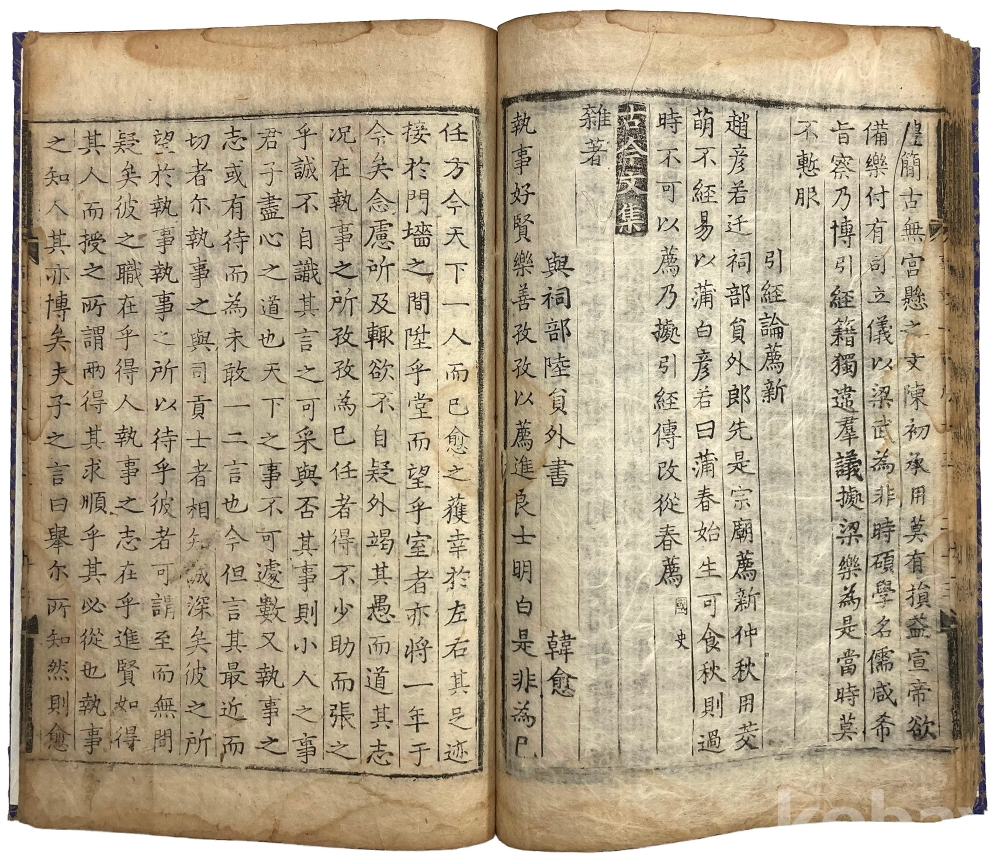 簡古無宮懸之文陳初承用莫有損益宣帝欲
備樂付有司立儀以梁武為非時碩學名儒咸希
旨察乃博引經籍獨違羣議據梁樂為是當時莫
不慙服
引經論薦新
趙彥若迁祠部貟外郎先是宗廟薦新仲秋用茭
萌不經易以蒲白彥若曰蒲春始生可食秋則過
時不可以薦乃據引經傳改從春薦 國史
古今文集
雜著
與祠部陸貟外書 韓愈
執事好賢樂善孜孜以薦進良士明白是非為己
任方今天下一人而已愈之獲幸於左右其足迹
接於門墻之間陞乎堂而望乎室者亦將一年于
今矣念慮所及輙欲不自疑外竭其愚而道其志
况在執事之所孜孜為己任者得不少助而張之
乎誠不自識其言之可采與否其事則小人之事
君子盡心之道也天下之事不可遽數又執事之
志或有待而為未敢一二言也今但言其最近而
切者尔執事之與司貢士者相知誠深矣彼之所
望於執事執事之所以待乎彼者可謂至而無間
疑矣彼之職在乎得人執事之志在乎進賢如得
其人而授之所謂兩得其求順乎其必從也執事
之知人其亦博矣夫子之言曰舉尔所知然則愈